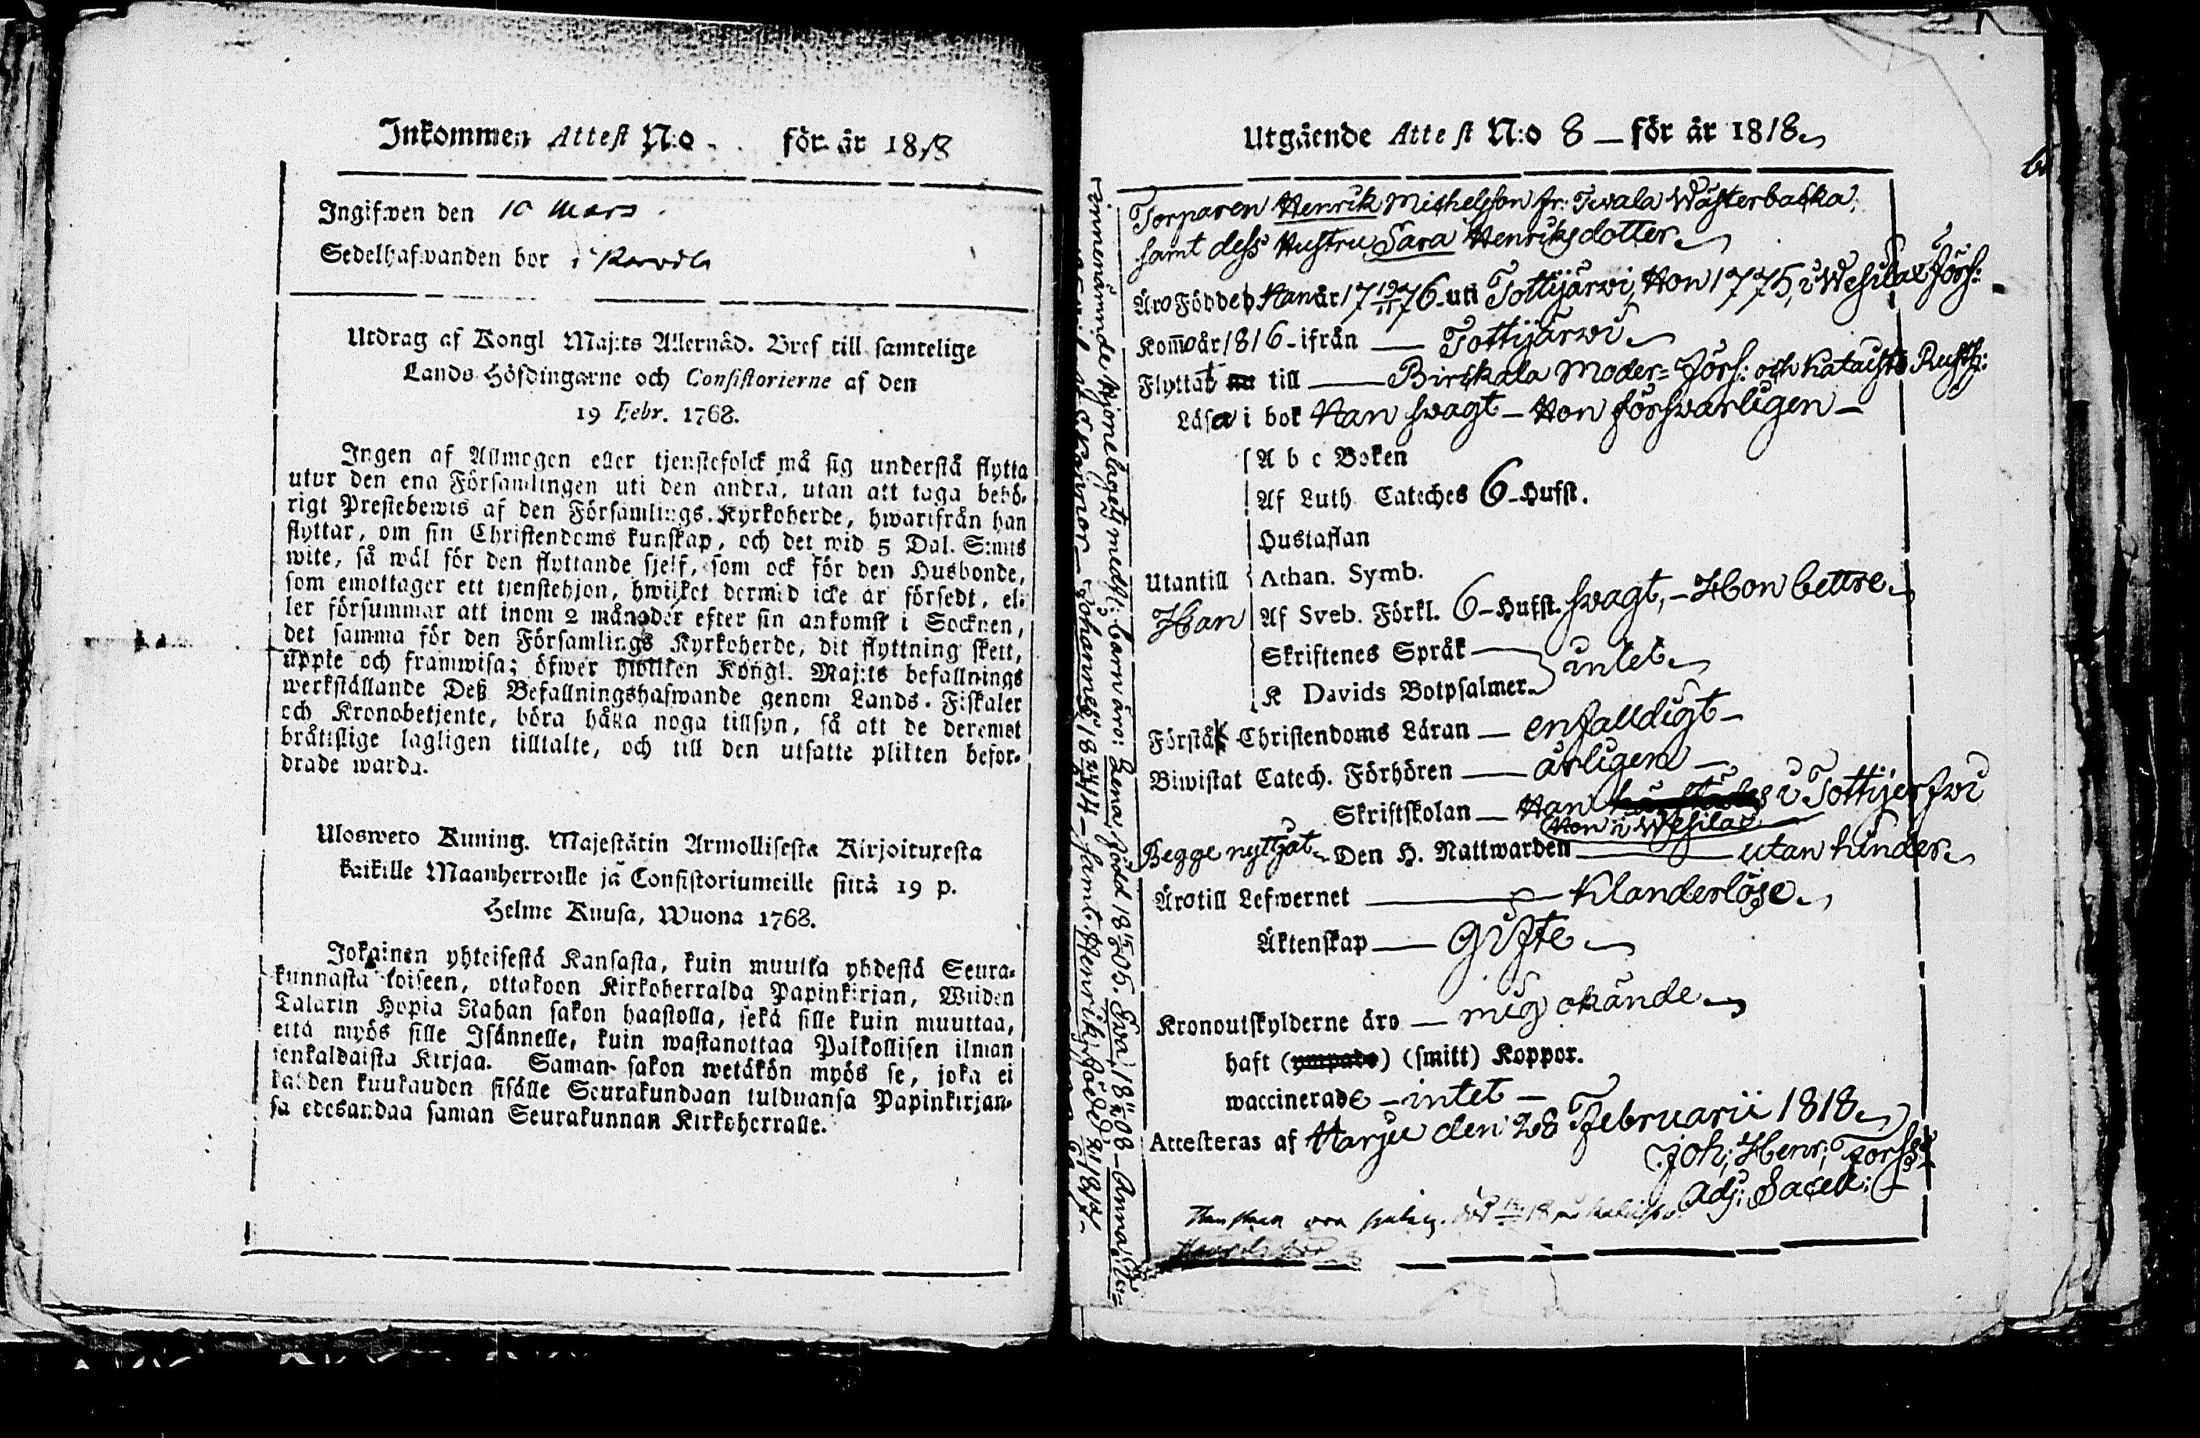 Inkommen Attest N:o . . för år 1818
Ingifwen den 10 Mars.
Sedelhafwanden bor i
Utdrag af Kongl Maj:ts Allernåd. Bref till samtelige
Lands-Höfdingarne och Consistorierne af den
19 Febr. 1768.
Ingen af Allmogen eller tjenstefolck må sig understå flytta
utur den ena Församlingen uti den andra, utan att taga behö-
rigt Prestebewis af den Församlings-Kyrkoherde, hwarifrån han
flyttar, om sin Christendoms kunskap, och det wid 5 Dal. S:mts
wite, så wäl för den flyttande sjelf, som ock för den Husbonde,
som emottager ett tjenstehjon, hwilket dermed icke är försedt, el-
ler försummar att inom 2 månader efter sin ankomst i Socknen,
det samma för den Församlings Kyrkoherde, dit flyttning skett,
uppte och framwisa; öfwer hwilken Kongl. Maj:ts befallnings
werkställande Deß Befallningshafwande genom Lands-Fiskaler
och Kronobetjente, böra hålla noga tillsyn, så att de deremot
bråttslige lagligen tilltalte, och till den utsatte plikten befor-
drade warda.
Ulosweto Kuning. Majestätin Armollisesta Kirjoituxesta
kaikille Maanherroille ja Consistoriumeille siitä 19 p.
Helme Kuusa, Wuona 1768.
Jokainen yhteisestä Kansasta, kuin muutta yhdestä Seura-
kunnasta toiseen, ottakoon Kirkoherralda Papinkirjan, Wiiden
Talarin Hopia Rahan sakon haastolla, sekä sille kuin muuttaa,
että myös sille Isännelle, kuin wastanottaa Palkollisen ilman
senkaldaista Kirjaa. Saman sakon wetäkön myös se, joka ei
kahden kuukauden sisälle Seurakundaan tulduansa Papinkirjan-
sa edesandaa saman Seurakunnan Kirkoherralle.
Utgående Attest N:o 8 — för år 1818
Torparen Henrik Michelsson fr: Twala Wästerbacka,
samt dess Hustru Sara Henriksdotter
Äro Födde Han år 17 19/11 76 uti Tottijärwi, Hon 1775, i Wesilax Förs:
Kommo år 1816 ifrån — Tottijärwi
Flyttat nu till — Birckala Moder-Förs: och
Läsa i bok Han swagt — Hon förswarligen —
A b c Boken
Af Luth. Cateches 6 Hufst.
Hustaflan
Utantill Athan. Symb.
Han Af Sveb. Förkl. 6 — Hufst. swagt, — Hon bettre
Skriftenes Språk — intet
K Davids Botpsalmer
Förstå Christendoms Läran — enfalldigt —
Biwistat Catech. Förhören — årligen —
Skriftskolan — Han i Tottijerfwi
Hon i Wesilax
Begge nyttjat Den H. Nattwarden — utan hinder
Äro till Lefwernet — Klanderlöse
Äktenskap — Gifte
Kronoutskylderne äro — mig okände
haft (ympade) (smitt) Koppor.
waccinerade — intet —
Attesteras af Harju den 28 Februarii 1818
Joh: Henr:
Adj: Sacell:
hjonelagets barn äro: Lena född 18 15/5 05. Sara 18 11/11 08 — Anna
Johannes 18 — samt Henrik född